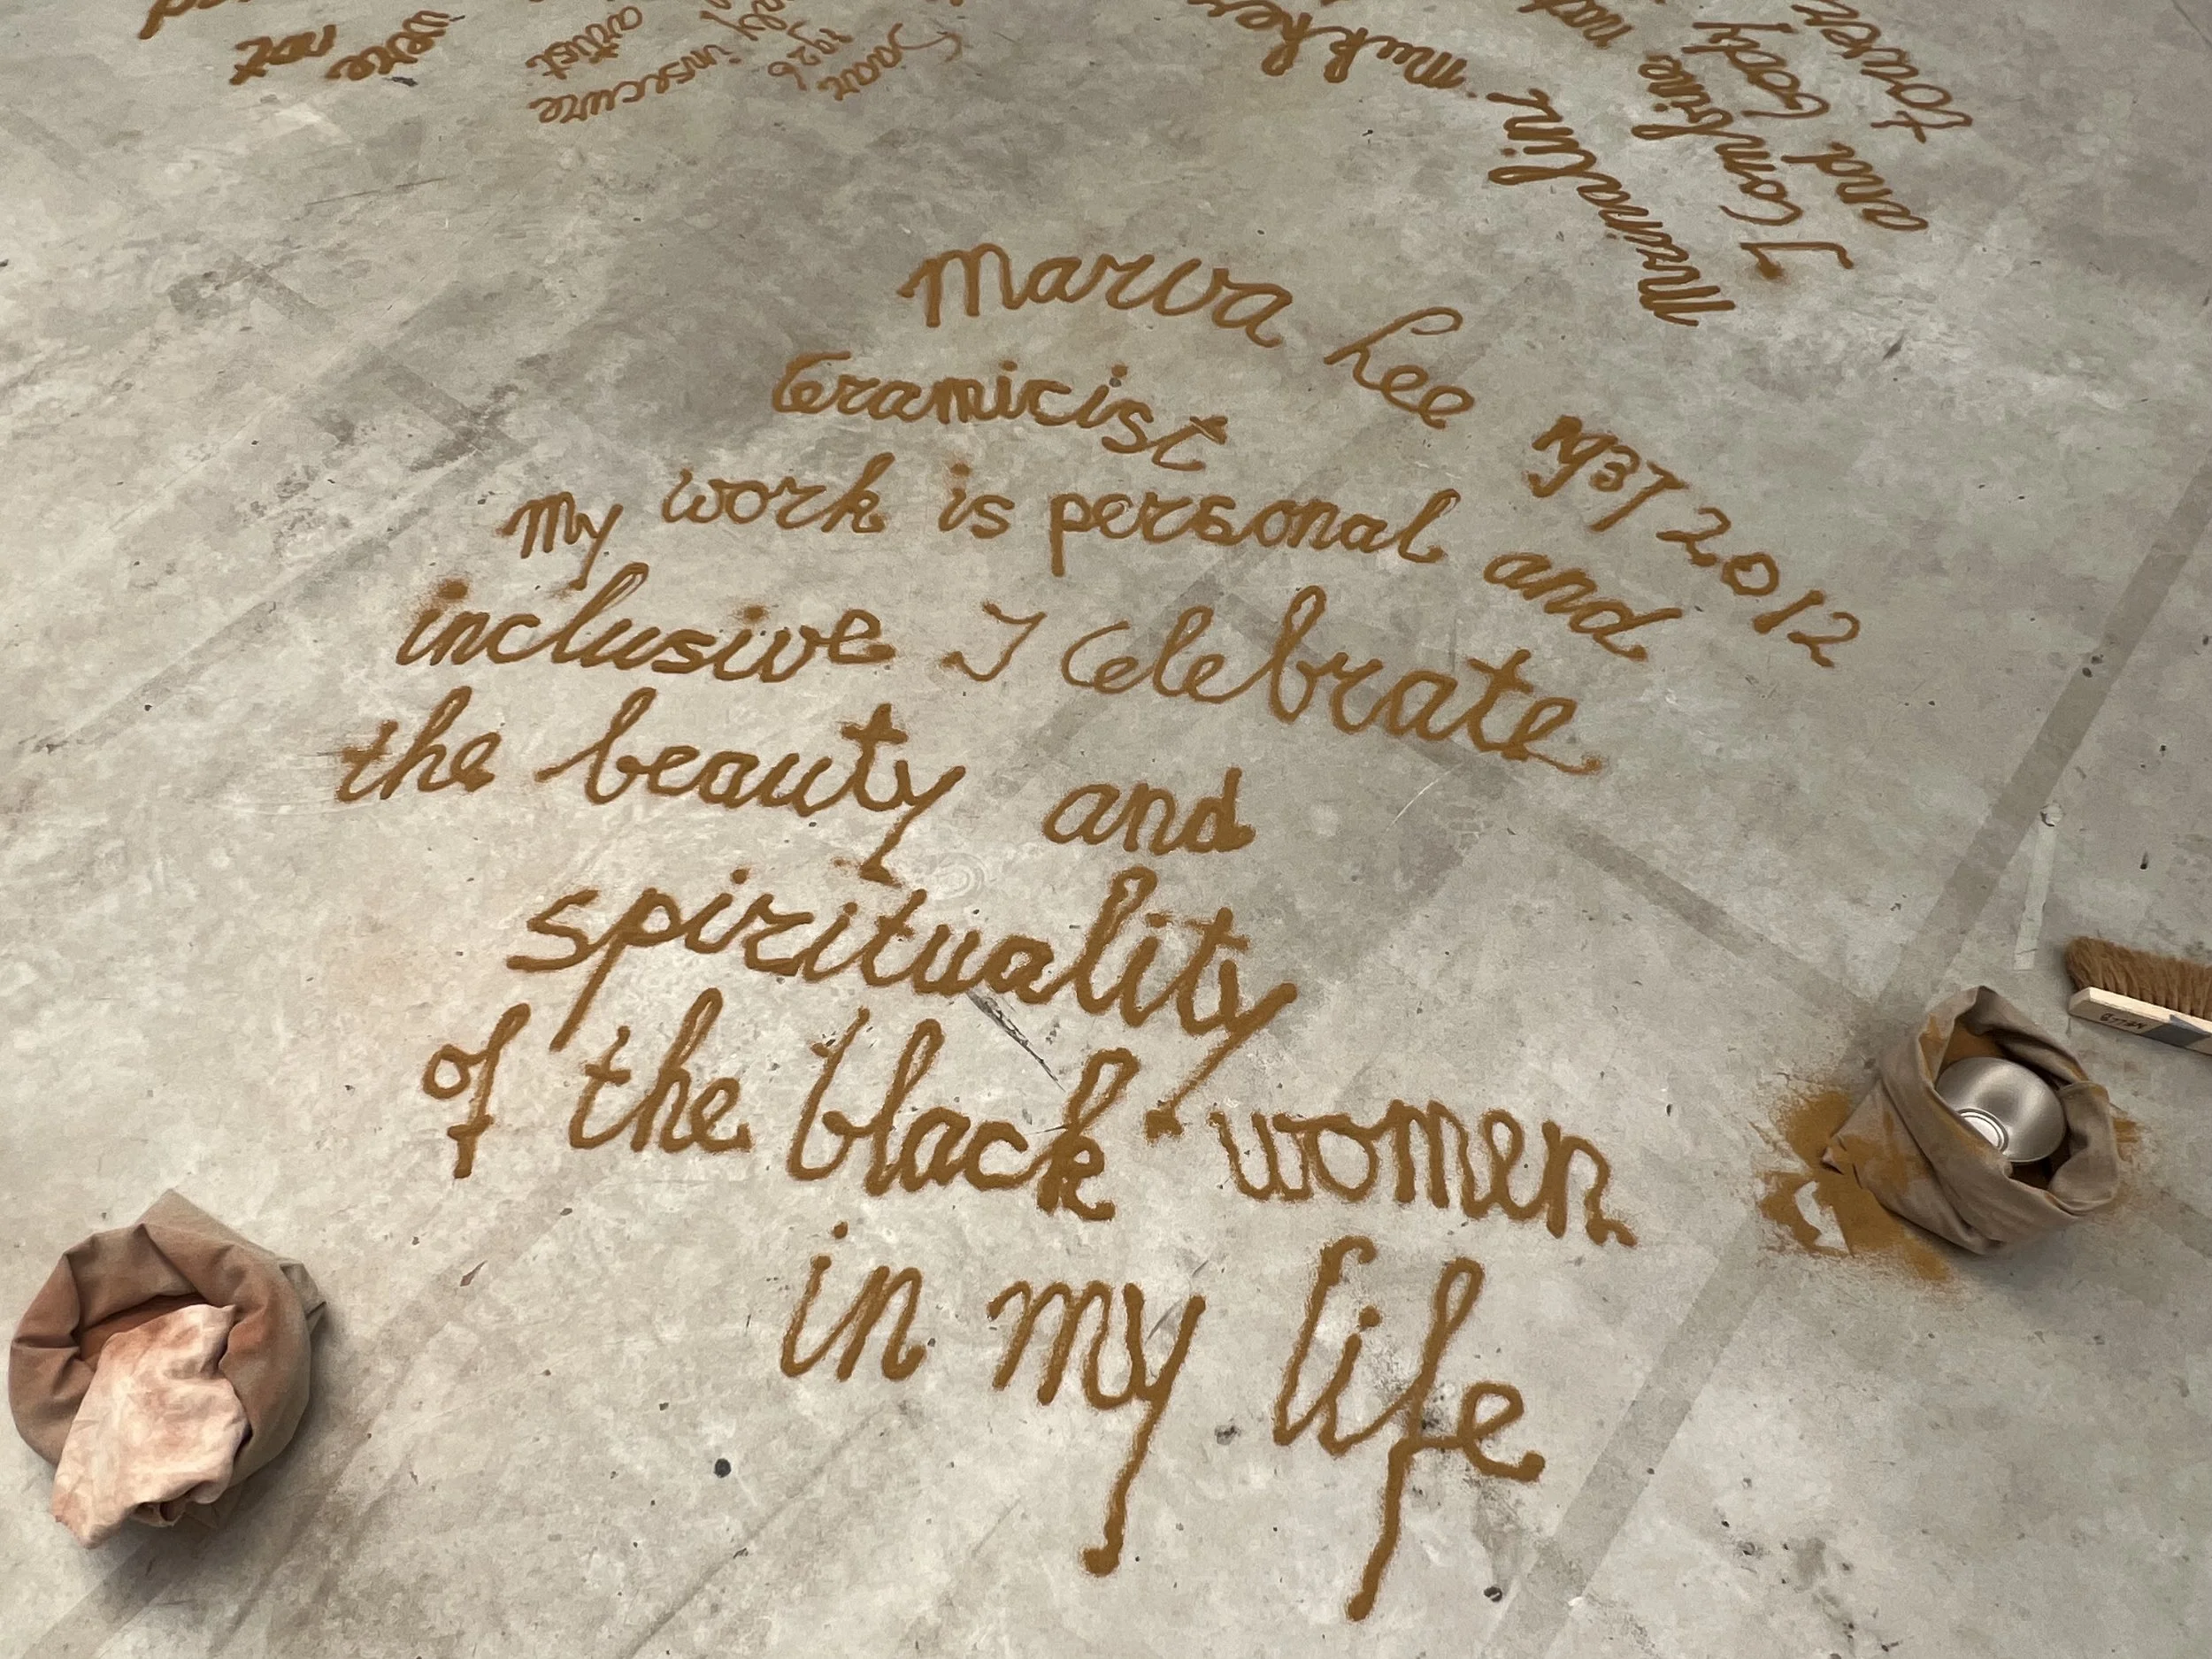 Marva Lee 1937 2012
Ceramicist
My work is personal and
inclusive I Celebrate
the beauty and
spirituality
of the black women
in my life
Nalini
mukher
I Combine
and body
tower
Saar
1926
insecure
artist
were
not